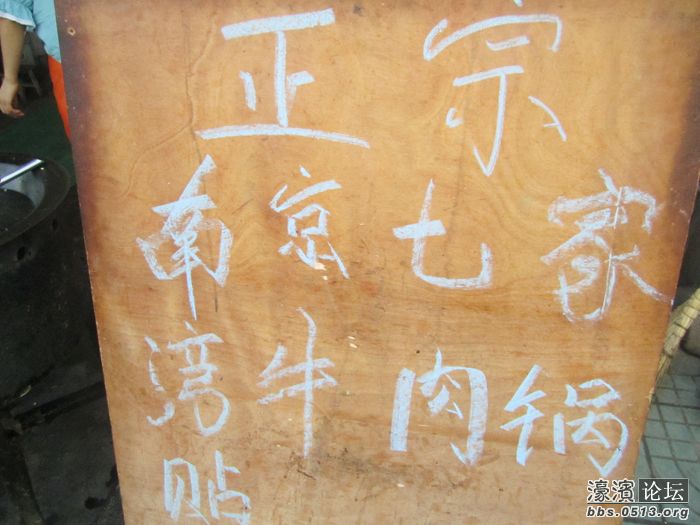 正宗
南京七家
湾牛肉锅
贴
濠滨论坛
bbs.0513.org